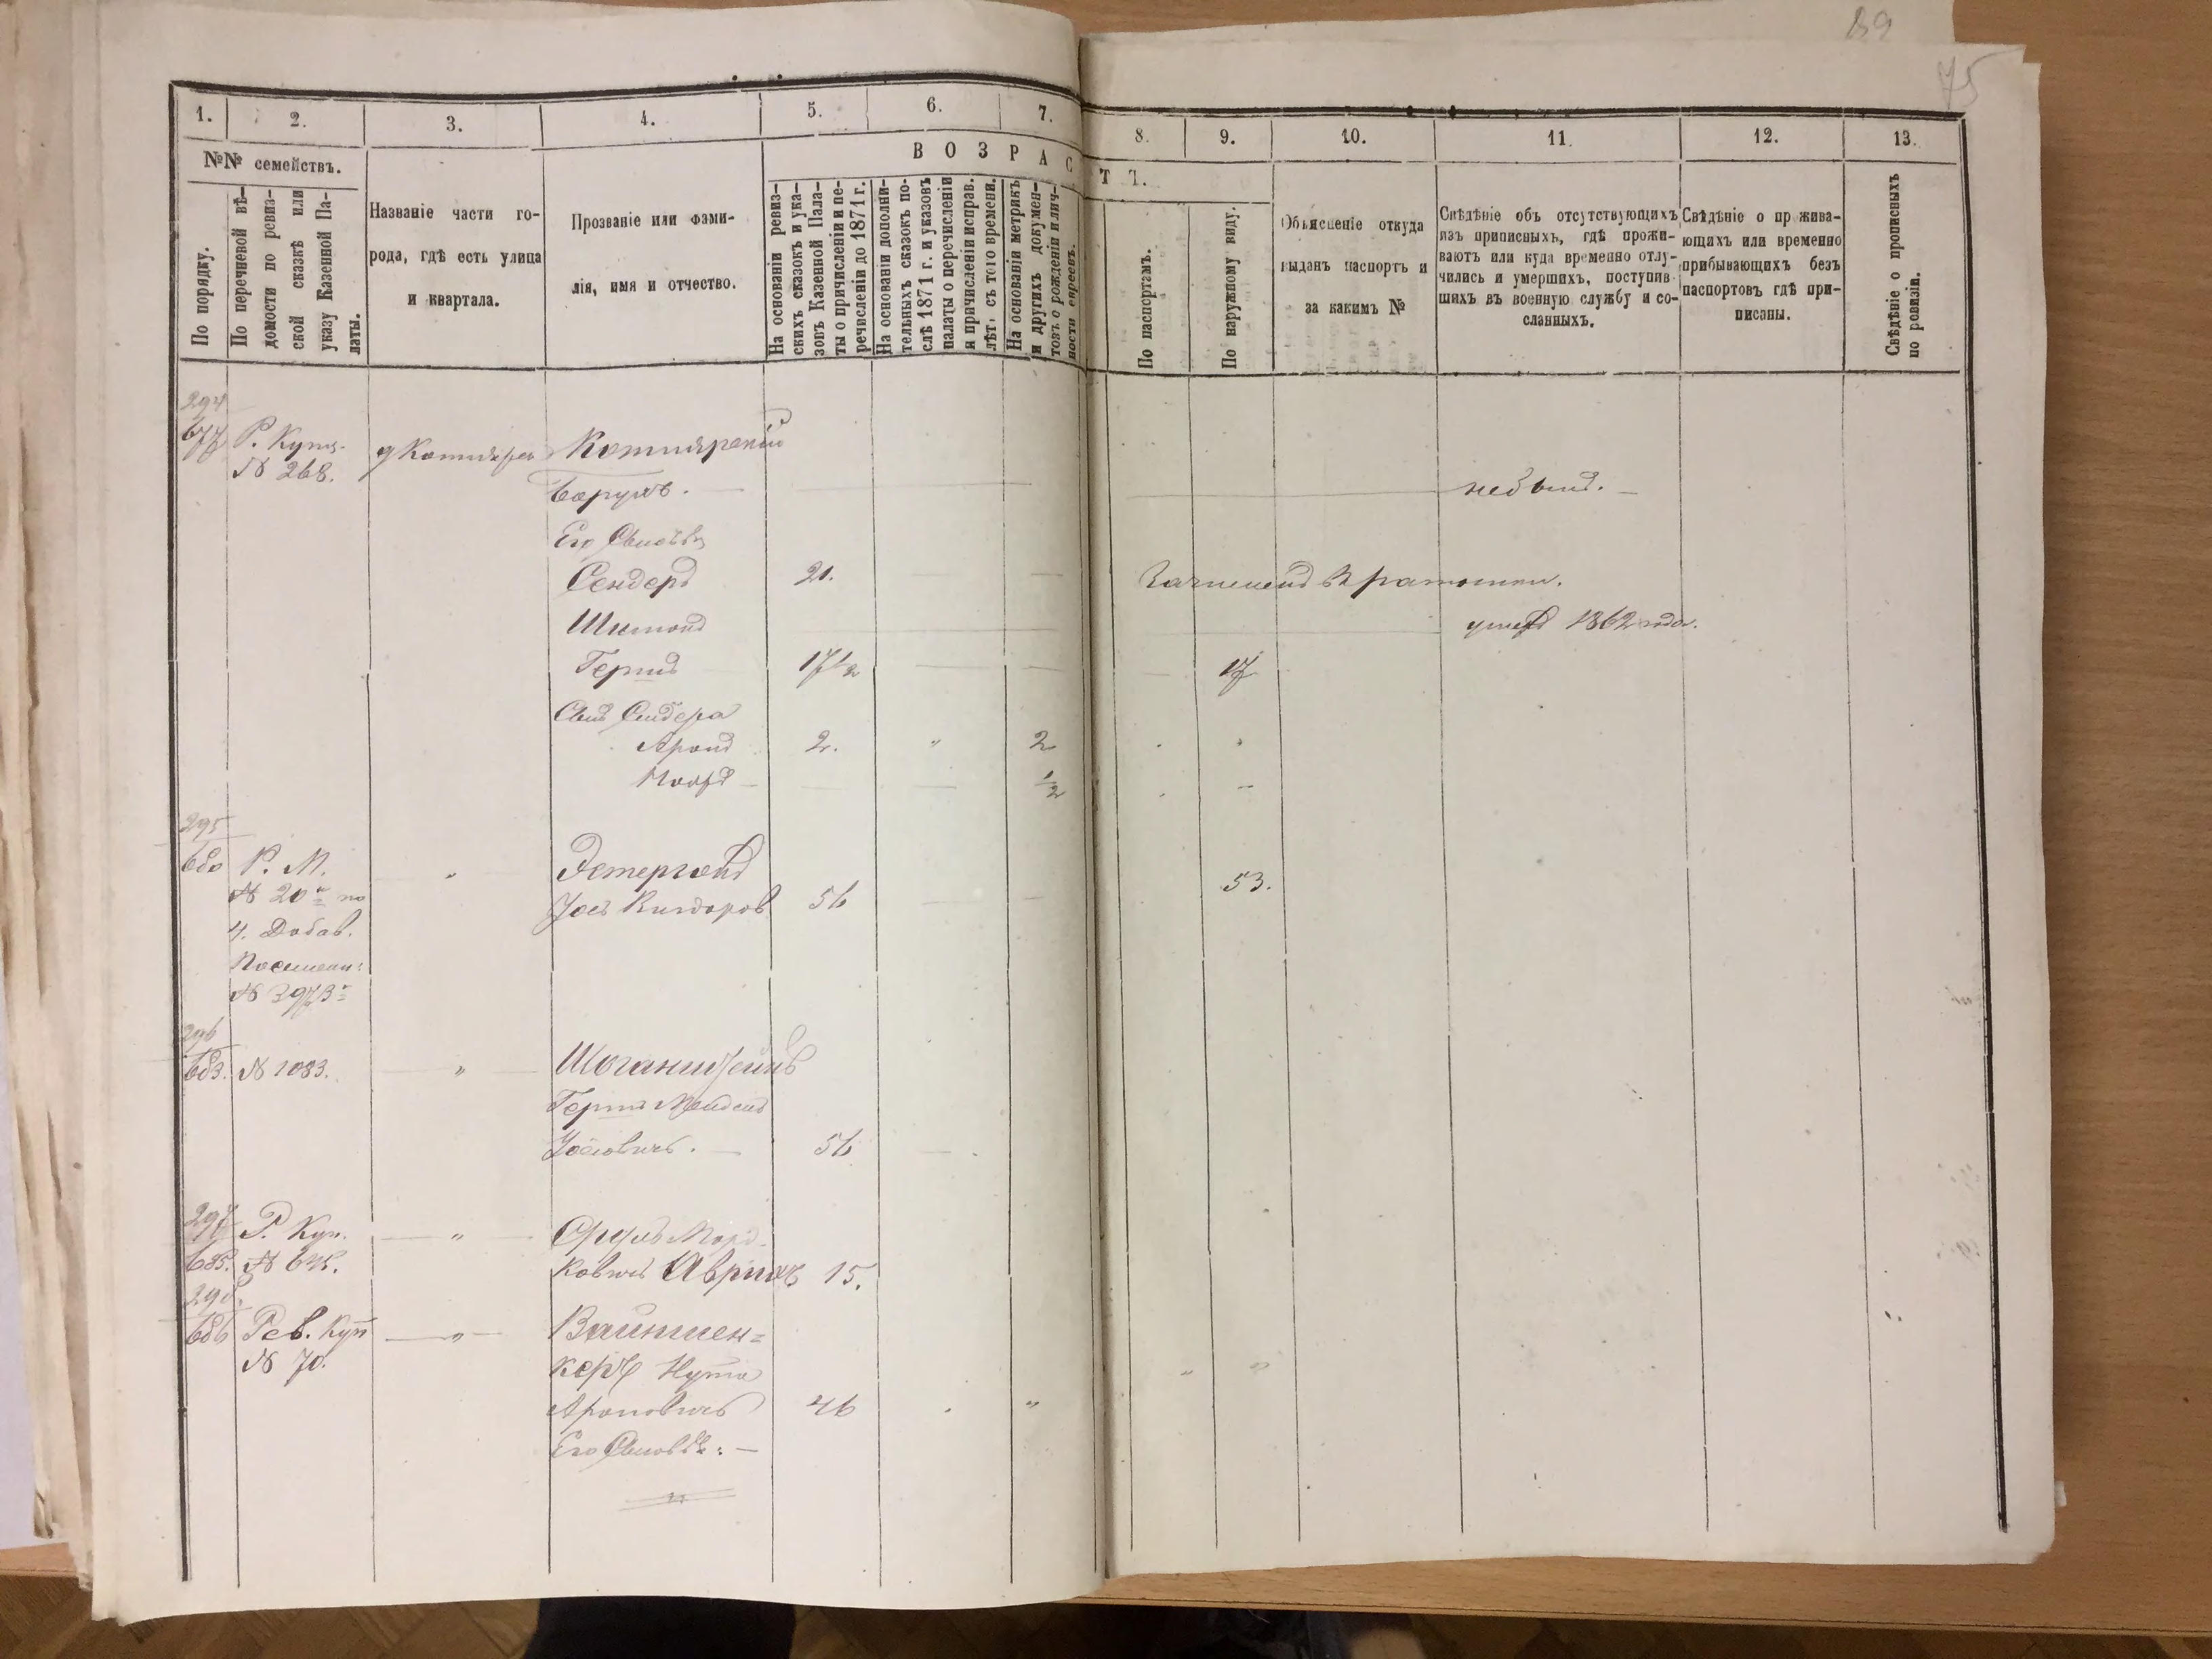 89
75
1.
2.
3.
4.
5.
6.
7.
8.
9.
10.
11.
12.
13.
№№ семействъ.
В О З Р А С
Т Ъ.
По порядку.
По перечневой вѣ-
домости по ревиз-
ской сказкѣ или
указу Казенной Па-
латы.
Названіе части го-
рода, гдѣ есть улица
и квартала.
Прозваніе или фами-
лія, имя и отчество.
На основаніи ревиз-
скихъ сказокъ и ука-
зовъ Казенной Пала-
ты о причисленіи и пе-
речисленіи до 1871 г.
На основаніи дополни-
тельныхъ сказокъ по-
слѣ 1871 г. и указовъ
палаты о перечисленіи
и причисленіи исправ.
лѣтъ съ того времени.
На основаніи метрикъ
и другихъ докумен-
товъ о рожденіи и лич-
ности евреевъ.
По паспортамъ.
По наружному виду.
Объясненіе откуда
выданъ паспортъ и
за какимъ №
Свѣдѣніе объ отсутствующихъ
изъ приписныхъ, гдѣ прожи-
ваютъ или куда временно отлу-
чились и умершихъ, поступив-
шихъ въ военную службу и со-
сланныхъ.
Свѣдѣніе о прожива-
ющихъ или временно
прибывающихъ безъ
паспортовъ гдѣ при-
писаны.
Свѣдѣніе о прописныхъ
по ревизіи.
294
677 Р. Купч.
№ 268.
Котлярскій
Борухъ.
Его Сыновья
Сендеръ 21.
Шимонъ умеръ 1862 года.
Гершъ 17½ 17
Сынъ Сендера
Аронъ 2. " 2
½
295
680 Р. М. "
Эстергонъ
№ 20 по
53.
56
4. Добав.
№ 3973
296
683. № 1083. "
Гершъ Мендель
Іосіовичъ. 56
297 Р. Куп. " Сруль Морд-
685. ковичъ Аврихъ 15.
298.
686 Рев. Куп " Вайншен-
№ 70. керъ Нута
Ароновичъ 46 "
Его Сыновья: